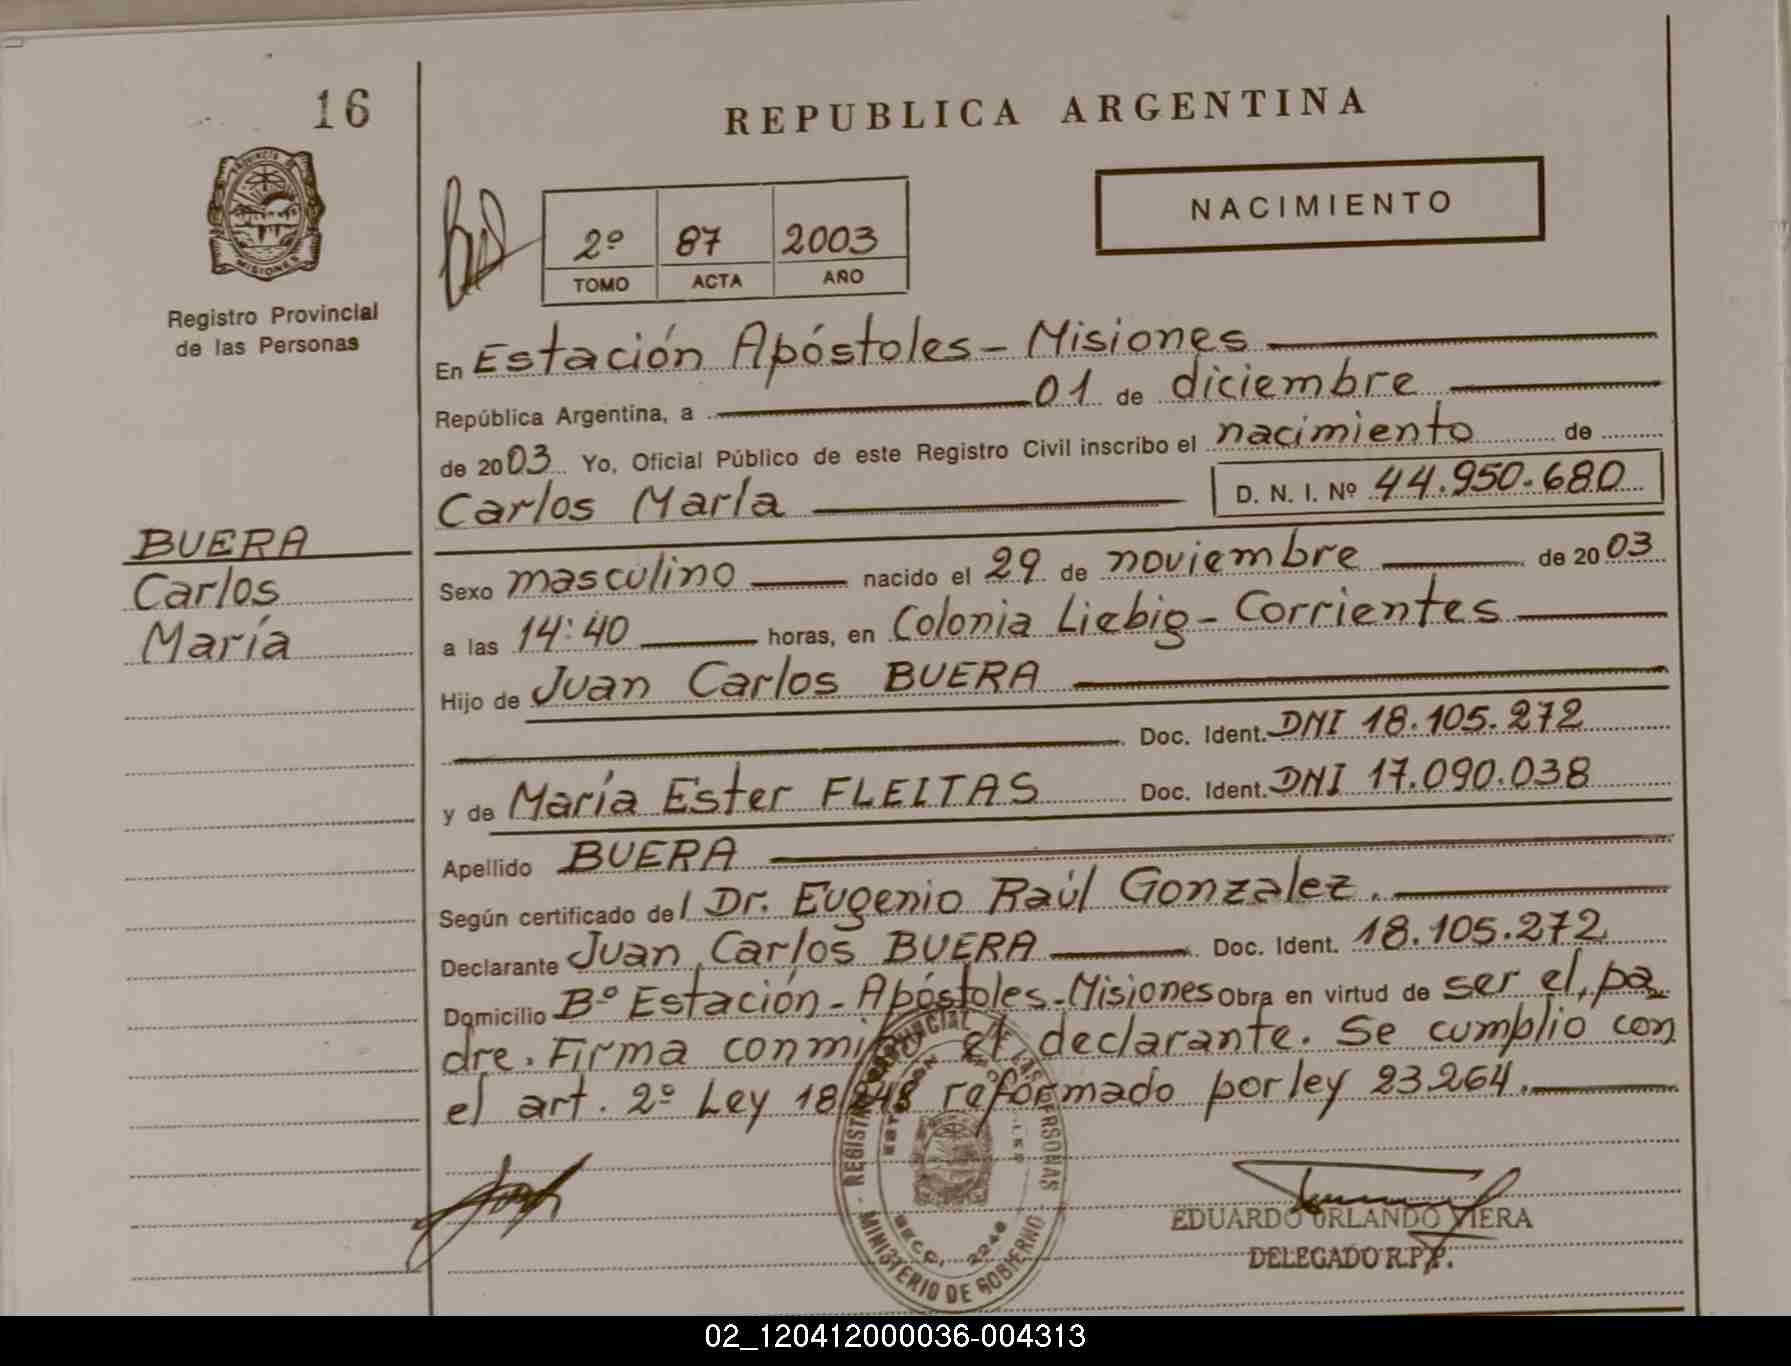 16
REPUBLICA ARGENTINA
PROVINCIA DE
MISIONES
Registro Provincial
de las Personas
NACIMIENTO
2º 87 2003
TOMO ACTA AÑO
En Estación Apóstoles - Misiones
República Argentina, a 01 de diciembre
de 2003 Yo, Oficial Público de este Registro Civil inscribo el nacimiento de
Carlos María D. N. I. Nº 44.950.680
BUERA
Carlos
María
Sexo masculino nacido el 29 de noviembre de 2003
a las 14:40 horas, en Colonia Liebig - Corrientes
Hijo de Juan Carlos BUERA
Doc. Ident. DNI 18.105.272
y de María Ester FLEITAS Doc. Ident. DNI 17.090.038
Apellido BUERA
Según certificado del Dr. Eugenio Raúl Gonzalez.
Declarante Juan Carlos BUERA Doc. Ident. 18.105.272
Domicilio Bº Estación - Apóstoles - Misiones Obra en virtud de ser el pa
dre. Firma conmigo el declarante. Se cumplio con
el art. 2º Ley 18248 reformado por ley 23264.
REGISTRO PROVINCIAL DE LAS PERSONAS
MINISTERIO DE GOBIERNO
SECC. 2240
EDUARDO ORLANDO VIERA
DELEGADO R.P.P.
02_120412000036-004313